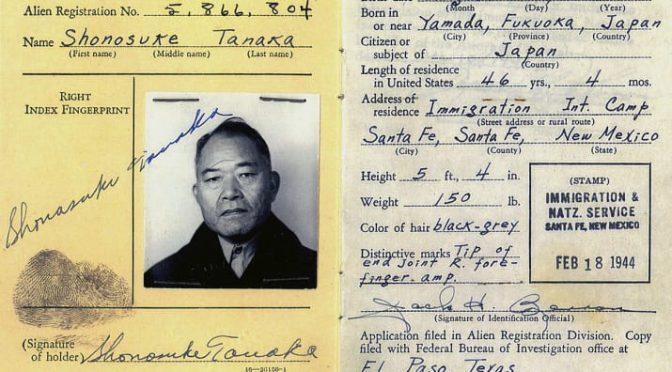 Alien Registration No. 5,866,804
Name Shonosuke Tanaka
(First name) (Middle name) (Last name)
RIGHT
INDEX FINGERPRINT
Shonosuke Tanaka
(Signature
of holder) Shonosuke Tanaka
16—26150-1
(Month) (Day) (Year)
Born in
or near Yamada, Fukuoka, Japan
(City) (Province) (Country)
Citizen or
subject of Japan
(Country)
Length of residence
in United States 46 yrs., 4 mos.
Address of
residence Immigration Int. Camp
(Street address or rural route)
Santa Fe, Santa Fe, New Mexico
(City) (County) (State)
Height 5 ft., 4 in.
Weight 150 lb.
Color of hair black-grey
Distinctive marks Tip of
end joint R. fore-
finger amp.
(STAMP)
IMMIGRATION &
NATZ. SERVICE
SANTA FE, NEW MEXICO
FEB 18 1944
Jack H.
(Signature of Identification Official)
Application filed in Alien Registration Division. Copy
filed with Federal Bureau of Investigation office at
El Paso, Texas